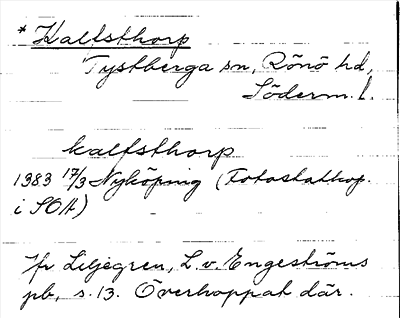 * Kalfsthorp
Tystberga sn, Rönö hd,
Söderm. l.
kalfsthorp
1383 17/3 Nyköping (Fotostatkop.
i SOA)
Jfr Liljegren, L. v. Engeströms
pb, s. 13. Överhoppat där.